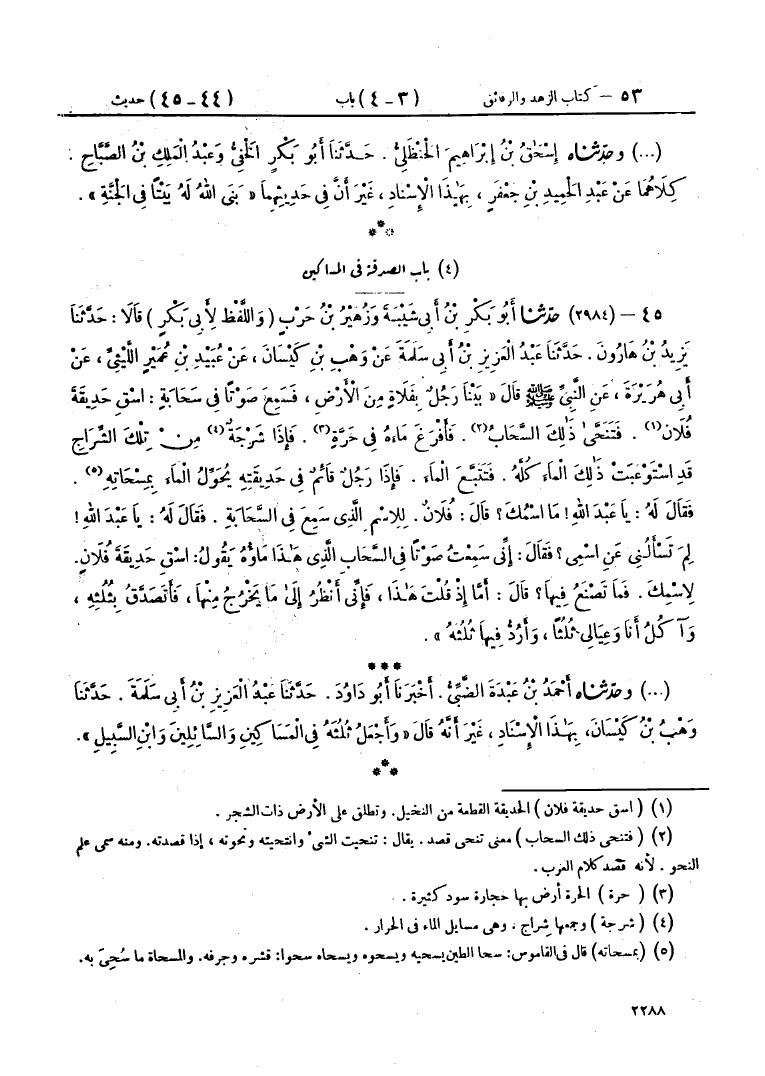 ٥٣ — كتاب الزهد والرقائق (٣ – ٤) باب (٤٤ – ٤٥) حديث
(...) وحَدَّثَنَاه إِسْحَٰقُ بْنُ إِبْرَاهِيمَ الْحَنْظَلِيُّ . حَدَّثَنَا أَبُو بَكْرٍ الْحَنَفِيُّ وَعَبْدُ الْمَلِكِ بْنُ الصَّبَّاحِ .
كِلَاهُمَا عَنْ عَبْدِ الْحَمِيدِ بْنِ جَعْفَرٍ ، بِهَٰذَا الْإِسْنَادِ ، غَيْرَ أَنَّ فِي حَدِيثِهِمَا « بَنَى اللهُ لَهُ بَيْتًا فِي الْجَنَّةِ » .
***
(٤) باب الصدقة فى المساكين
٤٥ – (٢٩٨٤) حَدَّثَنَا أَبُو بَكْرِ بْنُ أَبِي شَيْبَةَ وَزُهَيْرُ بْنُ حَرْبٍ ( وَاللَّفْظُ لِأَبِي بَكْرٍ ) قَالَا : حَدَّثَنَا
يَزِيدُ بْنُ هَارُونَ . حَدَّثَنَا عَبْدُ الْعَزِيزِ بْنُ أَبِي سَلَمَةَ عَنْ وَهْبِ بْنِ كَيْسَانَ ، عَنْ عُبَيْدِ بْنِ عُمَيْرٍ اللَّيْثِيِّ ، عَنْ
أَبِي هُرَيْرَةَ ، عَنِ النَّبِيِّ ﷺ قَالَ « بَيْنَا رَجُلٌ بِفَلَاةٍ مِنَ الْأَرْضِ ، فَسَمِعَ صَوْتًا فِي سَحَابَةٍ : اسْقِ حَدِيقَةَ
فُلَانٍ(١) . فَتَنَحَّىٰ ذَٰلِكَ السَّحَابُ(٢) . فَأَفْرَغَ مَاءَهُ فِي حَرَّةٍ(٣) . فَإِذَا شَرْجَةٌ(٤) مِنْ تِلْكَ الشِّرَاجِ
قَدِ اسْتَوْعَبَتْ ذَٰلِكَ الْمَاءَ كُلَّهُ . فَتَتَبَّعَ الْمَاءَ . فَإِذَا رَجُلٌ قَائِمٌ فِي حَدِيقَتِهِ يُحَوِّلُ الْمَاءَ بِمِسْحَاتِهِ(٥) .
فَقَالَ لَهُ : يَا عَبْدَ اللهِ ! مَا اسْمُكَ ؟ قَالَ : فُلَانٌ . لِلِاسْمِ الَّذِي سَمِعَ فِي السَّحَابَةِ . فَقَالَ لَهُ : يَا عَبْدَ اللهِ !
لِمَ تَسْأَلُنِي عَنِ اسْمِي ؟ فَقَالَ : إِنِّي سَمِعْتُ صَوْتًا فِي السَّحَابِ الَّذِي هَٰذَا مَاؤُهُ يَقُولُ : اسْقِ حَدِيقَةَ فُلَانٍ.
لِاسْمِكَ . فَمَا تَصْنَعُ فِيهَا ؟ قَالَ : أَمَّا إِذْ قُلْتَ هَٰذَا ، فَإِنِّي أَنْظُرُ إِلَىٰ مَا يَخْرُجُ مِنْهَا ، فَأَتَصَدَّقُ بِثُلُثِهِ ،
وَآكُلُ أَنَا وَعِيَالِي ثُلُثًا ، وَأَرُدُّ فِيهَا ثُلُثَهُ » .
***
(...) وحَدَّثَنَاه أَحْمَدُ بْنُ عَبْدَةَ الضَّبِّيُّ . أَخْبَرَنَا أَبُو دَاوُدَ . حَدَّثَنَا عَبْدُ الْعَزِيزِ بْنُ أَبِي سَلَمَةَ . حَدَّثَنَا
وَهْبُ بْنُ كَيْسَانَ، بِهَٰذَا الْإِسْنَادِ ، غَيْرَ أَنَّهُ قَالَ « وَأَجْعَلُ ثُلُثَهُ فِي الْمَسَاكِينِ وَالسَّائِلِينَ وَابْنِ السَّبِيلِ ».
***
(١) ( اسق حديقة فلان ) الحديقة القطعة من النخيل. وتطلق على الأرض ذات الشجر .
(٢) ( فتنحى ذلك السحاب ) معنى تنحى قصد . يقال : تنحيت الشىء وانتحيته ونحوته ، إذا قصدته. ومنه سمى علم
النحو . لأنه قصد كلام العرب.
(٣) ( حرة ) الحرة أرض بها حجارة سود كثيرة .
(٤) ( شرجة ) وجمعها شراج ، وهى مسايل الماء فى الحرار .
(٥) (بمسحاته) قال فى القاموس: سحا الطين يسحيه ويسحوه ويسحاه سحوا: قشره وجرفه. والمسحاة ما سُحِيَ به.
٢٢٨٨